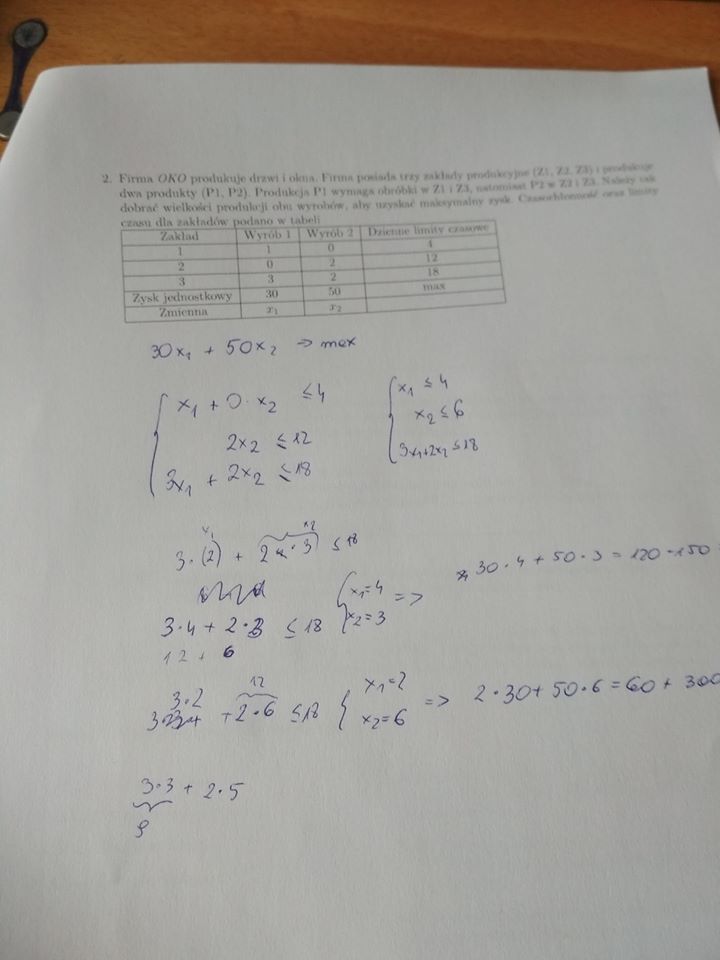 2. Firma OKO produkuje drzwi i okna. Firma posiada trzy zakłady produkcyjne (Z1, Z2, Z3) i produkuje
dwa produkty (P1, P2). Produkcja P1 wymaga obróbki w Z1 i Z3, natomiast P2 w Z2 i Z3. Należy tak
dobrać wielkości produkcji obu wyrobów, aby uzyskać maksymalny zysk. Czasochłonność oraz limity
czasu dla zakładów podano w tabeli
Zakład Wyrób 1 Wyrób 2 Dzienne limity czasowe
1 1 0 4
2 0 2 12
3 3 2 18
Zysk jednostkowy 30 50 max
Zmienna x₁ x₂
30x₁ + 50x₂ => max
x₁ + 0·x₂ ≤4
x₁ ≤ 4
2x₂ ≤12
x₂ ≤ 6
3x₁ + 2x₂ ≤18
3x₁+2x₂ ≤18
x₁ x₂
3·(2) + 2·3 ≤ 18
30·4 + 50·3 = 120 + 150
x₁=4
x₂=3
=>
3·4 + 2·3 ≤ 18
12 + 6
3·2 12
+ 2·6 ≤18
x₁=2
x₂=6
=> 2·30 + 50·6 = 60 + 300
3·3 + 2·5
9